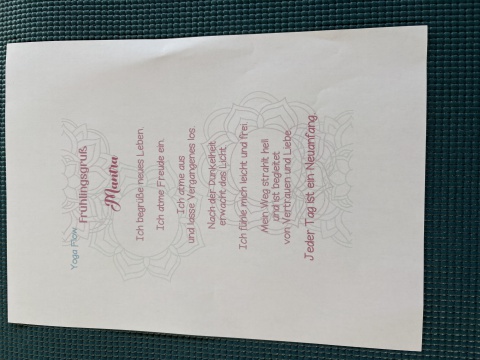 Yoga Flow
Frühlingsgruß
Mantra
Ich begrüße neues Leben.
Ich atme Freude ein.
Ich atme aus
und lasse Vergangenes los.
Nach der Dunkelheit
erwacht das Licht.
Ich fühle mich leicht und frei.
Mein Weg strahlt hell
und ist begleitet
von Vertrauen und Liebe.
Jeder Tag ist ein Neuanfang.